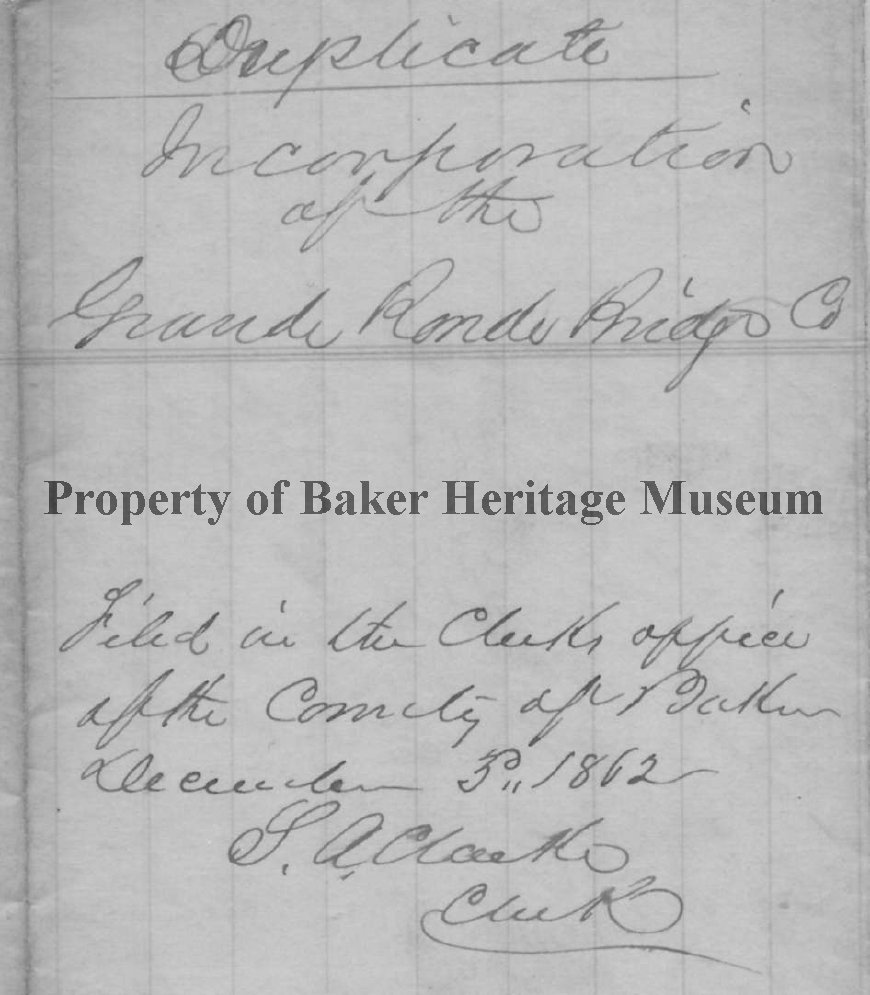 Duplicate
Incorporation
of the
Grande Ronde Bridge Co
Property of Baker Heritage Museum
Filed in the Clerks office
of the County of Baker
December 3,, 1862
S. A. Clarke
Clerk